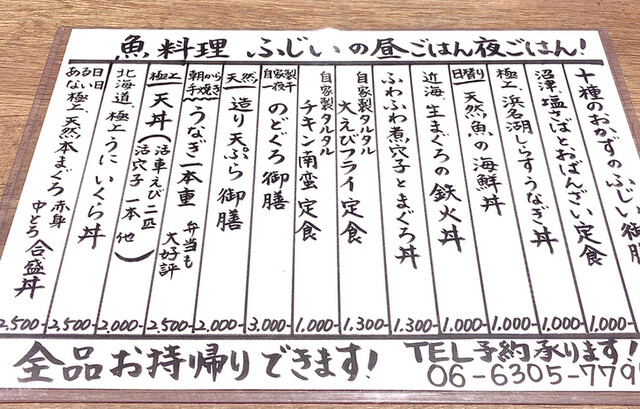 魚料理 ふじいの昼ごはん夜ごはん!
十種のおかずのふじい御膳
沼津、塩さばとおばんざい定食
1,000-
極上、浜名湖しらすうなぎ丼
1,000-
日替り 天然魚の海鮮丼
1,000-
近海、生まぐろの鉄火丼
1,000-
ふわふわ煮穴子とまぐろ丼
1,300-
自家製タルタル
大えびフライ定食
1,300-
自家製タルタル
チキン南蛮定食
1,000-
自家製
一夜干
のどぐろ御膳
3,000-
天然 造り天ぷら御膳
2,000-
朝から
手焼き
うなぎ一本重
弁当も
大好評
2,500-
極上 天丼(活車えび二匹
活穴子一本他)
2,000-
北海道、極上うにいくら丼
2,500-
ある日
ない日
極上、天然本まぐろ赤身
中とろ合盛丼
2,500-
全品お持帰りできます!
TEL予約承ります!
06-6305-779